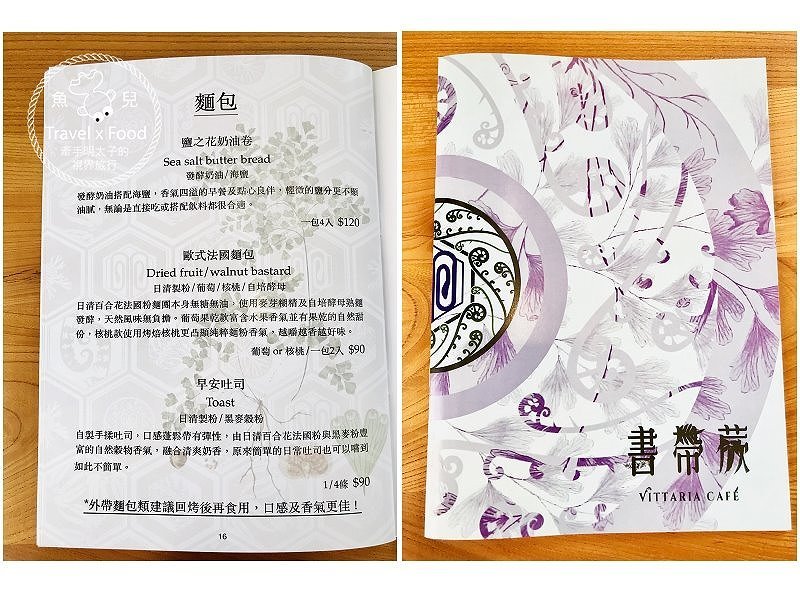 魚兒
Travel x Food
牽手明太子的
視界旅行
麵包
鹽之花奶油卷
Sea salt butter bread
發酵奶油/海鹽
發酵奶油搭配海鹽，香氣四溢的早餐及點心良伴，輕微的鹽分更不顯
油膩，無論是直接吃或搭配飲料都很合適。
一包4入 $120
歐式法國麵包
Dried fruit/walnut bastard
日清製粉/葡萄/核桃/自培酵母
日清百合花法國粉麵團本身無糖無油，使用麥芽糊精及自培酵母熟麵
發酵，天然風味無負擔。葡萄果乾款富含水果香氣並有果乾的自然甜
份，核桃款使用烤焙核桃更凸顯純粹麵粉香氣，越嚼越香越好味。
葡萄 or 核桃/一包2入 $90
早安吐司
Toast
日清製粉/黑麥穀粉
自製手揉吐司，口感蓬鬆帶有彈性，由日清百合花法國粉與黑麥粉豐
富的自然穀物香氣，融合清爽奶香，原來簡單的日常吐司也可以嚐到
如此不簡單。
1/4條 $90
*外帶麵包類建議回烤後再食用，口感及香氣更佳！
16
書帶蕨
VITTARIA CAFÉ